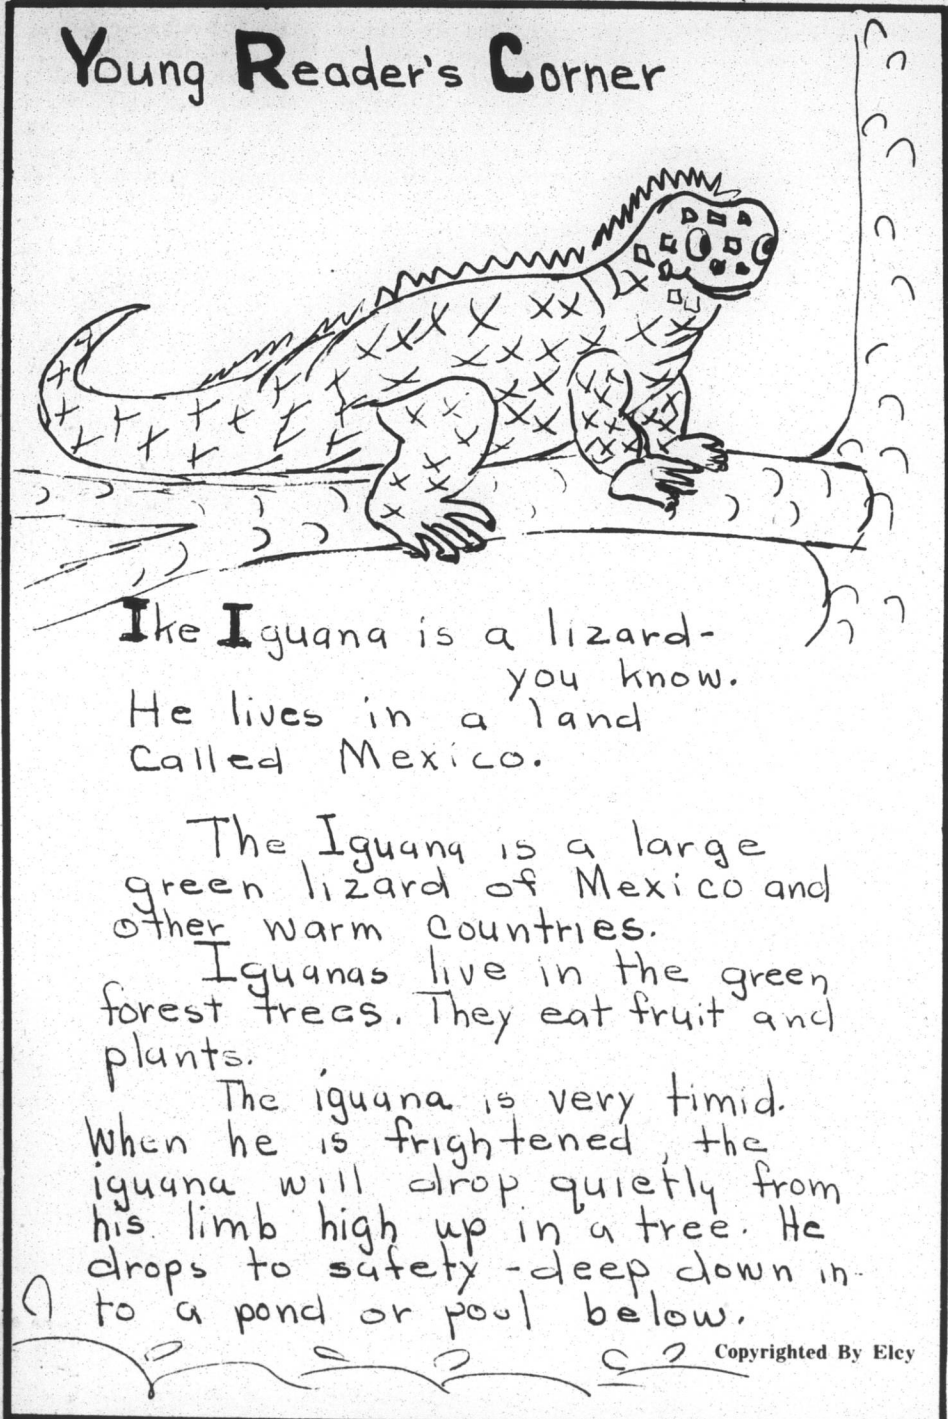 Young Reader's Corner
Ike Iguana is a lizard-
you know.
He lives in a land
Called Mexico.
The Iguana is a large
green lizard of Mexico and
other warm countries.
Iguanas live in the green
forest trees. They eat fruit and
plants.
The iguana is very timid.
When he is frightened, the
iguana will drop quietly from
his limb high up in a tree. He
drops to safety - deep down in-
to a pond or pool below.
Copyrighted By Elcy